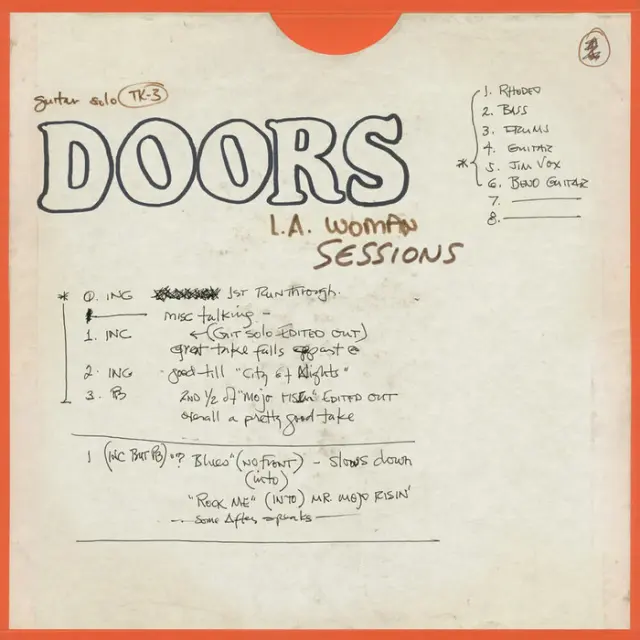 guitar solo TK-3
DOORS
L.A. WOMAN
SESSIONS
1. RHODES
2. BASS
3. DRUMS
4. GUITAR
* 5. JIM VOX
6. BEND GUITAR
7.
8.
* 0. INC 1ST RUNTHROUGH.
misc talking -
1. INC ←(GIT SOLO EDITED OUT)
great take falls apart @
2. INC good till "City of Nights"
3. PB 2ND 1/2 of "MOJO RISIN" EDITED OUT
overall a pretty good take
1 (INC BUT PB) "? Blues" (NO FRONT) - slows down
(into)
"ROCK ME" (INTO) MR. MOJO RISIN'
some After